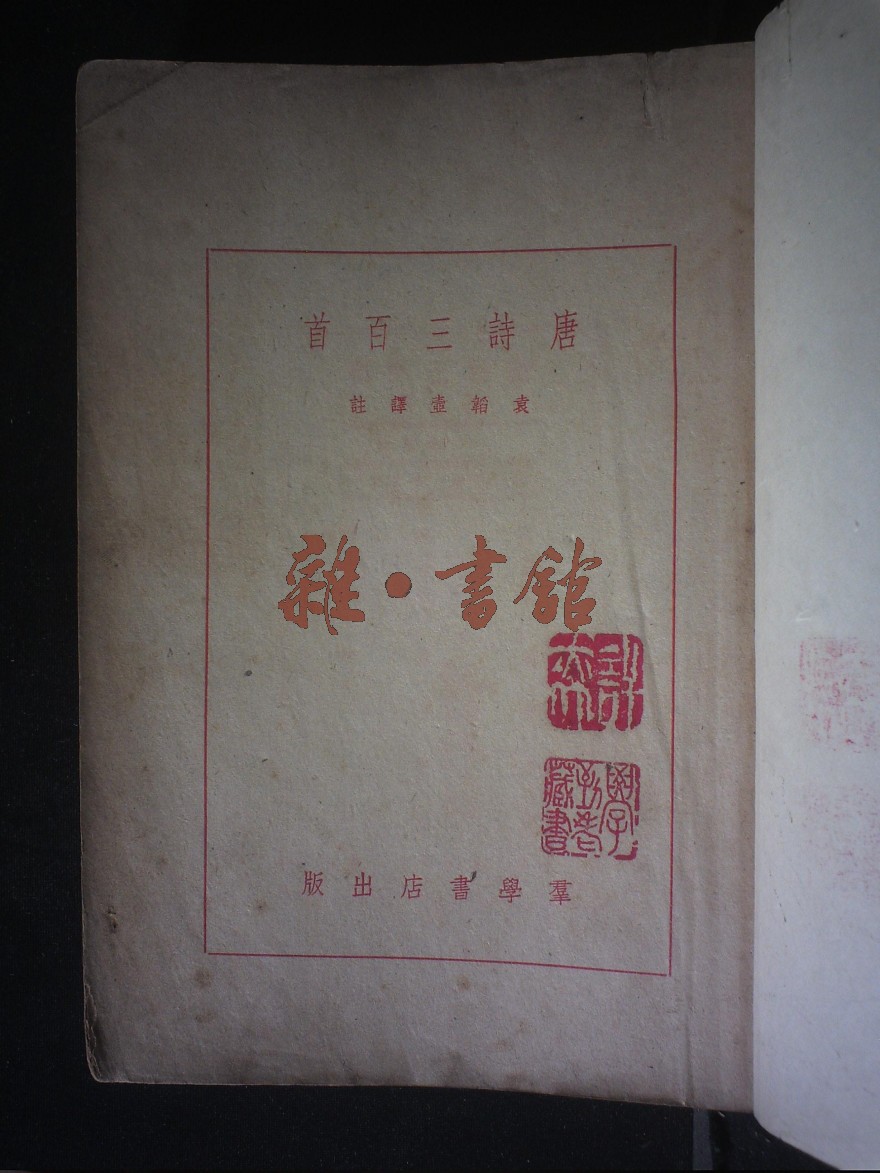 唐詩三百首
袁韜壺譯註
雜·書館
羣學書店出版